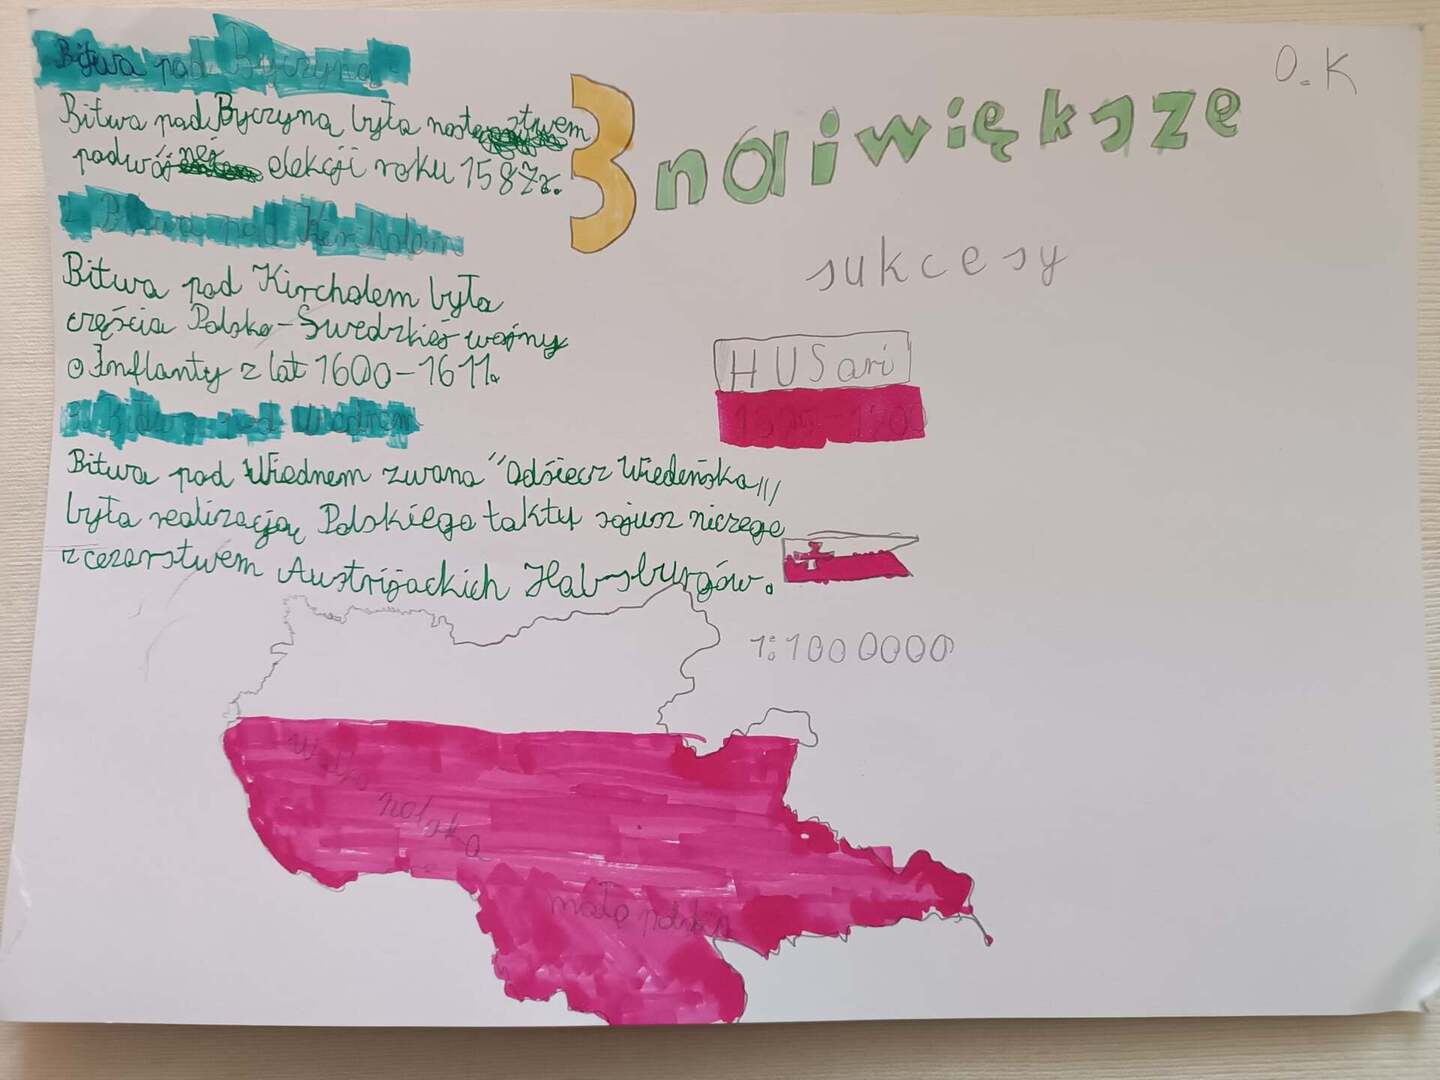 Bitwa pod Byczyną
Bitwa pod Byczyną była następstwem
podwójnej elekcji roku 1587r.
Bitwa pod Kircholem
Bitwa pod Kircholem była
częścia Polsko-Swedzkiej wojny
o Inflanty z lat 1600-1611.
Bitwa pod Wiednem
Bitwa pod Wiednem zwana "Odsiecz Wiedeńska"
była realizacją Polskiego taktu sojusz niczego
z cezarstwem Austrijackich Habsburgów.
3 naiwiększe
sukcesy
O.K
HUSari
1:1000000
wielko polska
mało polska